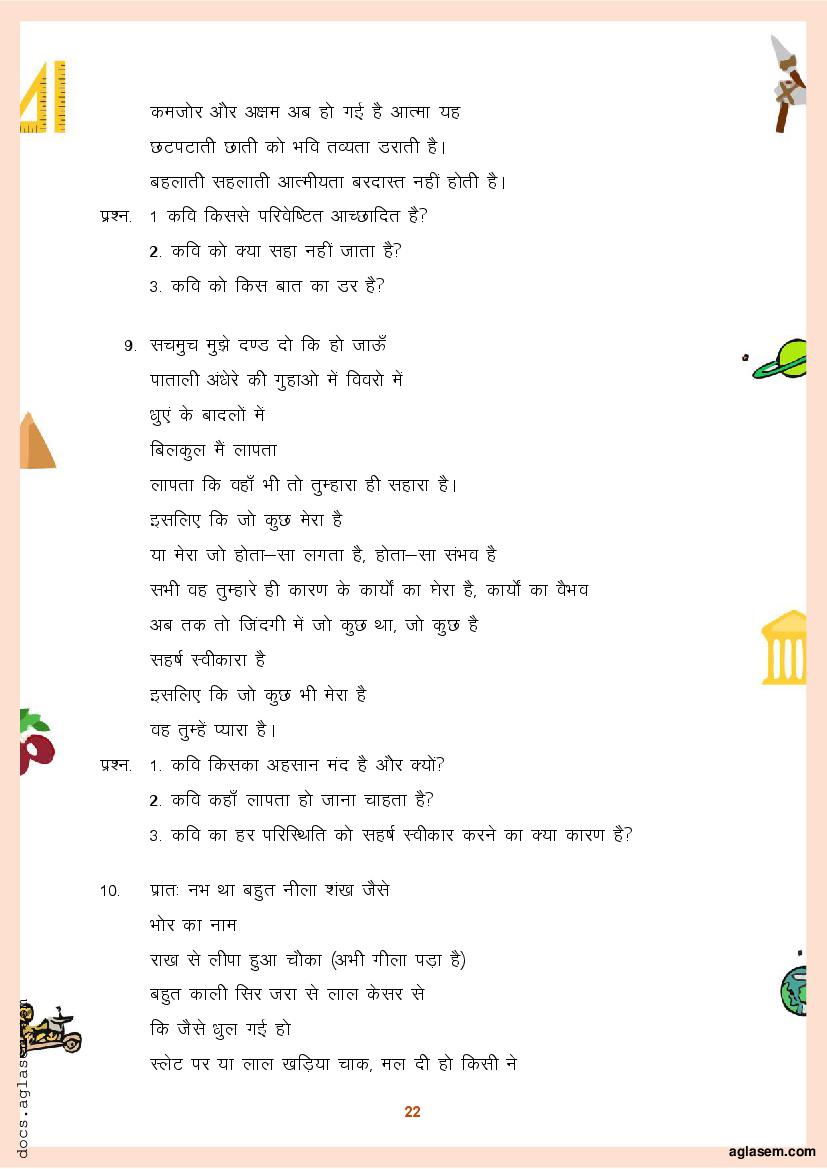 कमजोर और अक्षम अब हो गई है आत्मा यह
छटपटाती छाती को भवि तव्यता डराती है।
बहलाती सहलाती आत्मीयता बरदास्त नहीं होती है।
प्रश्न. 1 कवि किससे परिवेष्टित आच्छादित है?
2. कवि को क्या सहा नहीं जाता है?
3. कवि को किस बात का डर है?
9. सचमुच मुझे दण्ड दो कि हो जाऊँ
पाताली अंधेरे की गुहाओ में विवरो में
धुएं के बादलों में
बिलकुल मैं लापता
लापता कि वहाँ भी तो तुम्हारा ही सहारा है।
इसलिए कि जो कुछ मेरा है
या मेरा जो होता–सा लगता है, होता–सा संभव है
सभी वह तुम्हारे ही कारण के कार्यों का घेरा है, कार्यों का वैभव
अब तक तो जिंदगी में जो कुछ था, जो कुछ है
सहर्ष स्वीकारा है
इसलिए कि जो कुछ भी मेरा है
वह तुम्हें प्यारा है।
प्रश्न. 1. कवि किसका अहसान मंद है और क्यों?
2. कवि कहाँ लापता हो जाना चाहता है?
3. कवि का हर परिस्थिति को सहर्ष स्वीकार करने का क्या कारण है?
10. प्रातः नभ था बहुत नीला शंख जैसे
भोर का नाम
राख से लीपा हुआ चौका (अभी गीला पड़ा है)
बहुत काली सिर जरा से लाल केसर से
कि जैसे धुल गई हो
स्लेट पर या लाल खड़िया चाक, मल दी हो किसी ने
22
docs.aglasem.com
aglasem.com